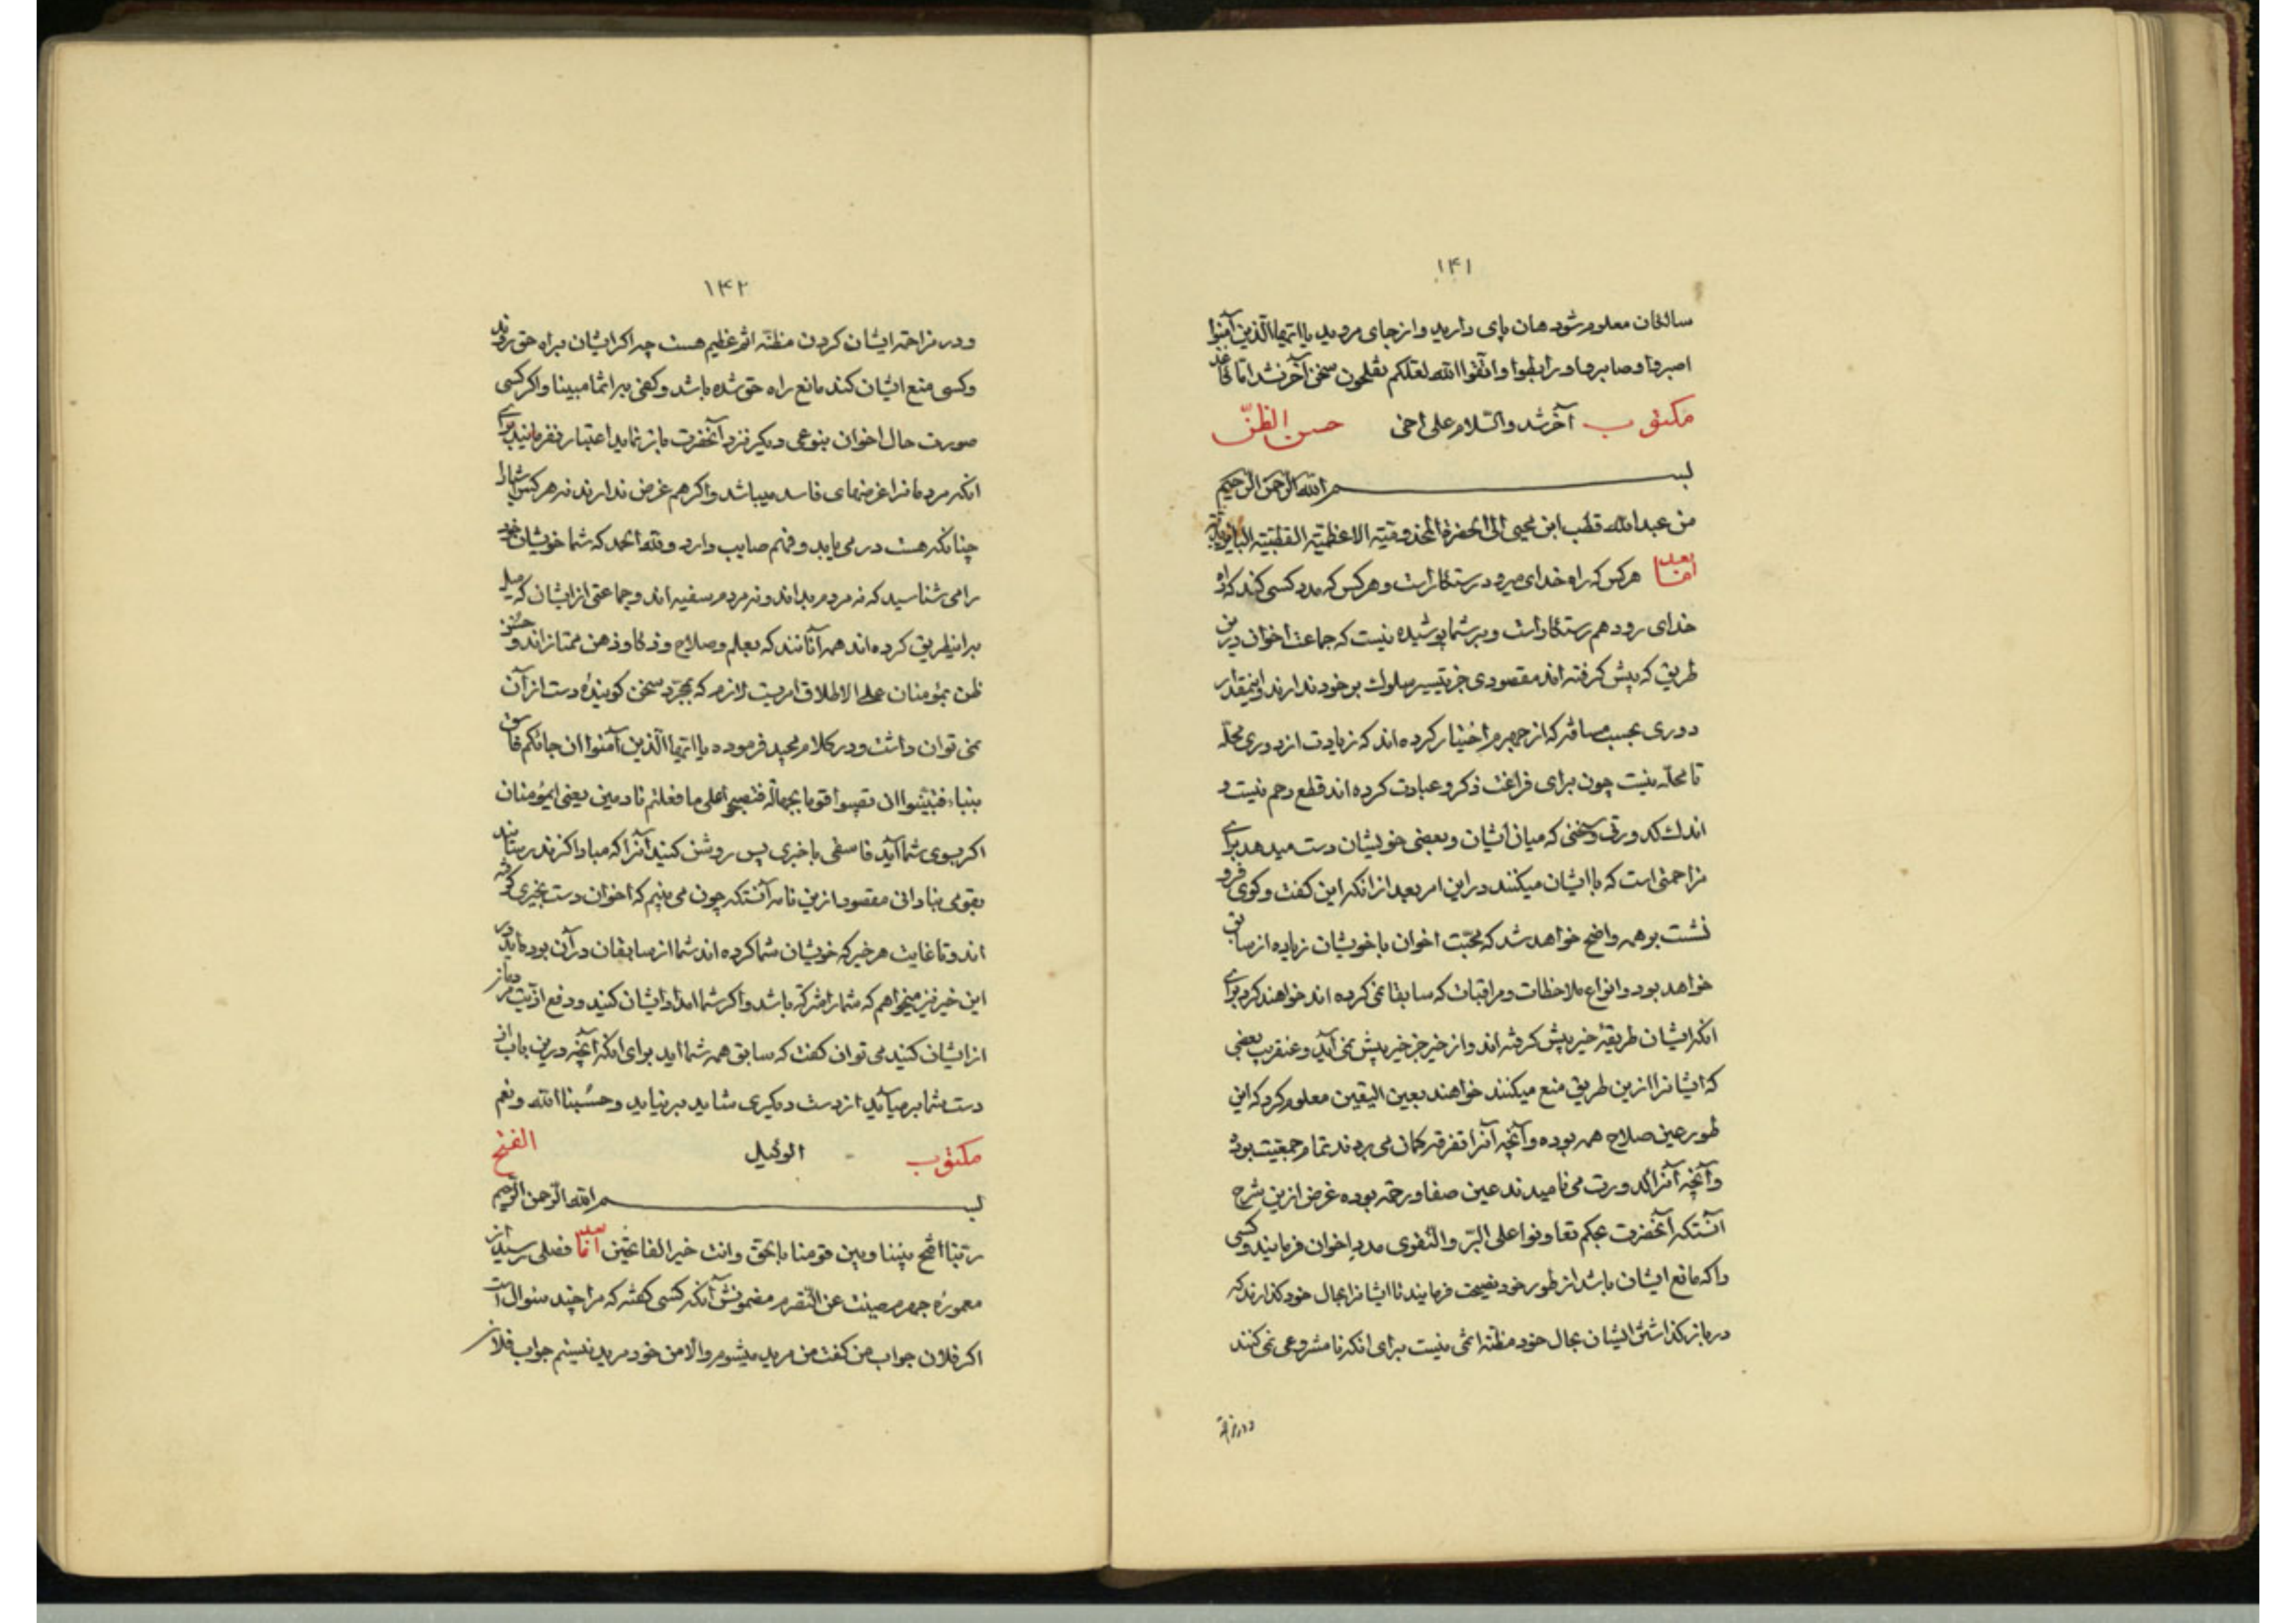 ۱۴۱
سالخان معلوم شود هان پای دارید و از جای مروید یا ایها الذین آمنوا
اصبروا و صابروا و رابطوا و اتقوا الله لعلکم تفلحون سخن آخر شد اما
مکتوب آخر شد والسلام علی اخی حسن الظن
بسم الله الرحمن الرحیم
من عبدالله قطب ابن محیی الی الحضرة المخدومیّة الاعظمیّة القطبیّة
اما بعد هر کس که راه خدای میرود رستکار است و هر کس که مدد کسی کند که راه
خدای رود هم رستکار است و بر شما پوشیده نیست که جماعت اخوان درین
طریق که پیش کرفته اند مقصودی جز تیسیر سلوک بر خود ندارند و اینقدار
دوری بحسب مسافه که از جهرم اختیار کرده اند که زیادت از دوری محله
تا محله نیست چون برای فراغت ذکر و عبادت کرده اند قطع رحم نیست و
اندک کدورتی و سخنی که میان ایشان و بعضی خویشان دست میدهد برای
مزاحمتی است که با ایشان میکنند در این امر بعد از انکه این کفت وکوی فرو
نشست بر همه واضح خواهد شد که محبّت اخوان با خویشان زیاده از سابق
خواهد بود و انواع ملاحظات و مراقبات که سابقا نمی کرده اند خواهند کرد برای
انکه ایشان طریقهٔ خیر پیش کرفته اند و از خیر جز خیر پیش نمی آید و عنقریب بعضی
که ایشانرا ازین طریق منع میکنند خواهند بعین الیقین معلوم کرد که این
طور عین صلاح همه بوده و آنچه آنرا تفرقه کمان می بردند تمام جمعیت بود
و آنچه آنرا کدورت می نامیدند عین صفا و رحمة بوده غرض ازین شرح
آنستکه آنحضرت بحکم تعاونوا علی البرّ والتّقوی مدد اخوان فرمایند و کسی
را که مانع ایشان باشد از طور خود نصیحت فرمایند تا ایشانرا بحال خود کذارند که
در باز کذاشتن ایشان بحال خود مظنّه اثمی نیست برای انکه نامشروعی نمی کنند
۱۴۲
و در مزاحمة ایشان کردن مظنّه اثم عظیم هست چه اکر ایشان براه حق روند
و کسی منع ایشان کند مانع راه حق شده باشد و کفی به اثما مبینا و اکر کسی
صورت حال اخوان بنوعی دیکر نزد آنحضرت باز نماید اعتبار نفرمایند برای
انکه مردمانرا غرضهای فاسد میباشد و اکر هم غرض ندارند نه هر کس اشیا را
چنانکه هست در می یابد و فهم صایب دارد و لله الحمد که شما خویشان خود
را می شناسید که نه مردم بداند و نه مردم سفیه اند و جماعتی از ایشان که میل
براین طریق کرده اند همه آنانند که بعلم و صلاح و ذکا و ذهن ممتازاند و حسن
ظن بمؤمنان علی الاطلاق امریست لازم که بمجرّد سخن کوینده دست از آن
نمی توان داشت و در کلام مجید فرموده یا ایها الذین آمنوا ان جائکم فاسق
بنباء فتبیّنوا ان تصیبوا قوما بجهالة فتصبحوا علی ما فعلتم نادمین یعنی ای مؤمنان
اکر بسوی شما آید فاسقی با خبری پس روشن کنید آنرا که مبادا کزند رسانید
بقومی بنادانی مقصود ازین نامه آنستکه چون می بینیم که اخوان دست بخیری کرفته
اند و تا غایت هر خیر که خویشان شما کرده اند شما از سابقان در آن بوده اید در
این خیر نیز میخواهم که شما را شرکة باشد و اکر شما امداد ایشان کنید و دفع اذیّت مردم از
از ایشان کنید می توان کفت که سابق همه شما اید برای انکه آنچه درین باب از
دست شما برمیآید از دست دیکری شاید برنیاید و حسبنا الله و نعم
مکتوب الوکیل الفتح
بسم الله الرحمن الرحیم
ربّنا افتح بیننا و بین قومنا بالحق و انت خیر الفاتحین اما بعد فصلی رسید از
معمورهٔ جهرم صینت عن التّصرم مضمونش آنکه کسی کفته که مرا چند سؤال است
اکر فلان جواب من کفت من مرید میشوم و الا من خود مرید نیستم جواب فلان